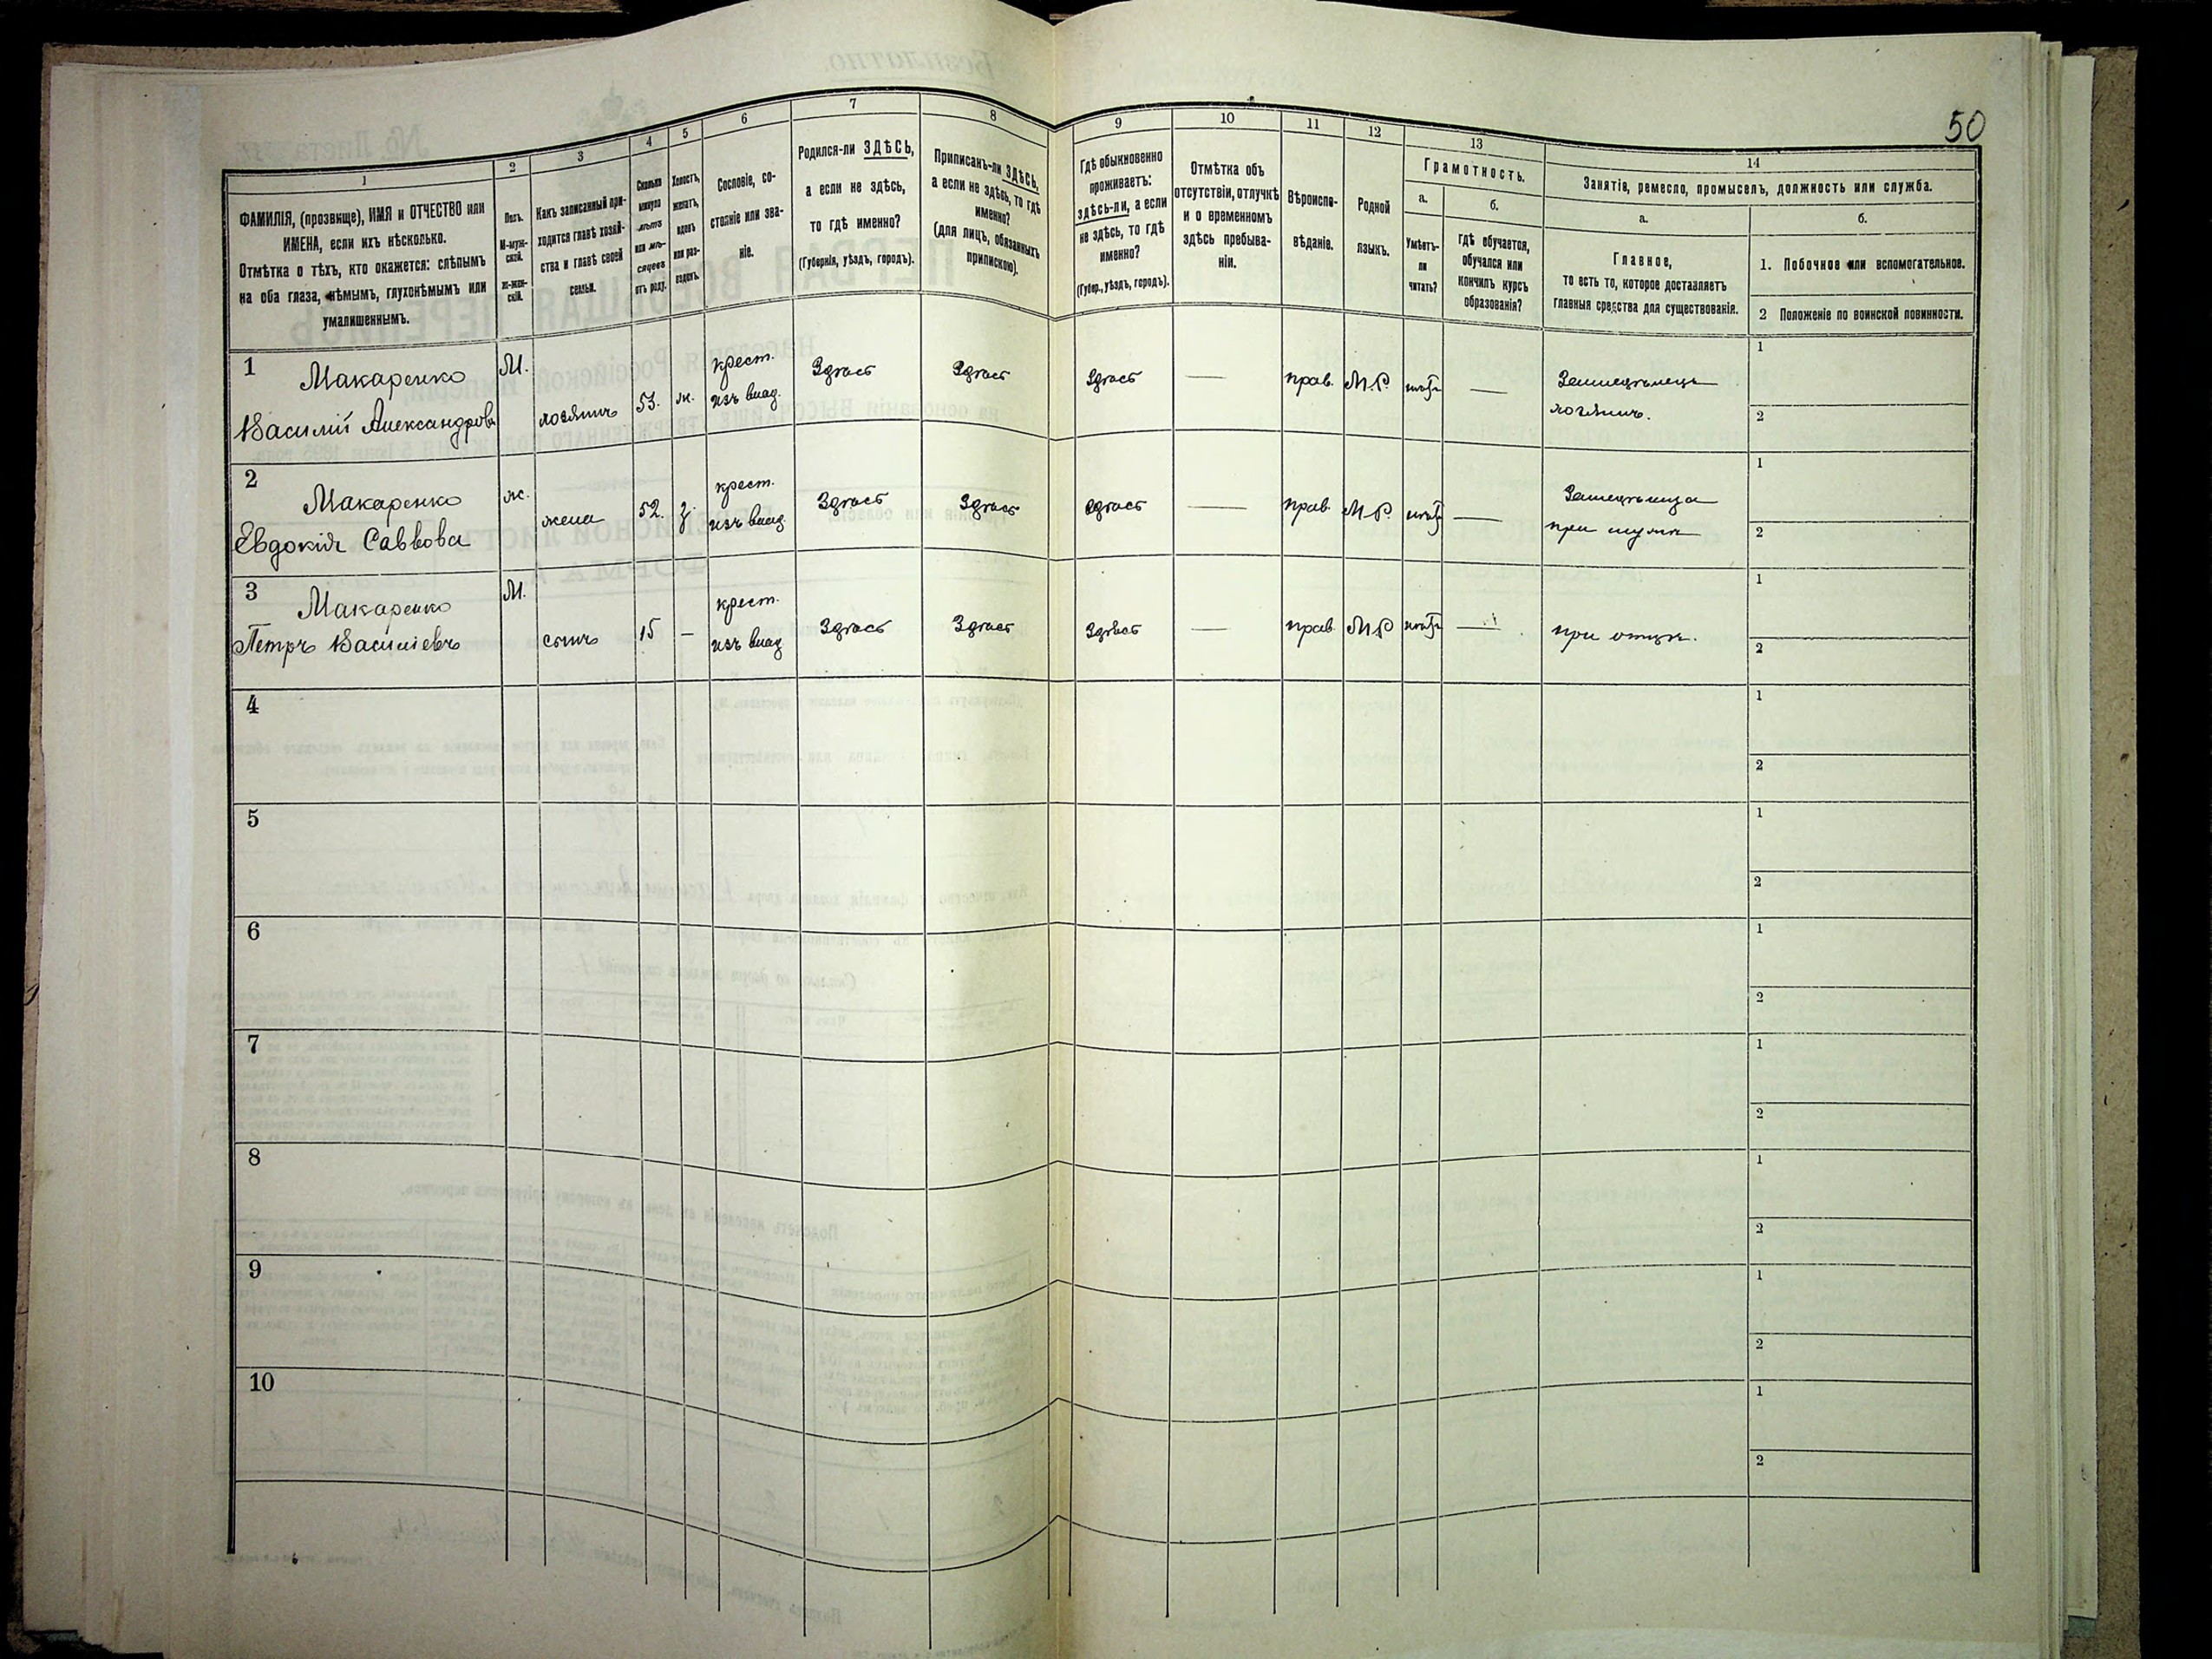 50
1
2
3
4
5
6
7
8
9
10
11
12
13
14
ФАМИЛІЯ, (прозвище), ИМЯ и ОТЧЕСТВО или
ИМЕНА, если ихъ нѣсколько.
Отмѣтка о тѣхъ, кто окажется: слѣпымъ
на оба глаза, нѣмымъ, глухонѣмымъ или
умалишеннымъ.
Полъ.
М-муж-
ской.
Ж-жен-
скій.
Какъ записанный при-
ходится главѣ хозяй-
ства и главѣ своей
семьи.
Сколько
минуло
лѣтъ
или мѣ-
сяцевъ
отъ роду.
Холостъ,
женатъ,
вдовъ
или раз-
веденъ.
Сословіе, со-
стояніе или зва-
ніе.
Родился-ли ЗДѢСЬ,
а если не здѣсь,
то гдѣ именно?
(Губернія, уѣздъ, городъ).
Приписанъ-ли ЗДѢСЬ,
а если не здѣсь, то гдѣ
именно?
(для лицъ, обязанныхъ
припискою).
Гдѣ обыкновенно
проживаетъ:
здѣсь-ли, а если
не здѣсь, то гдѣ
именно?
(Губер., уѣздъ, городъ).
Отмѣтка объ
отсутствіи, отлучкѣ
и о временномъ
здѣсь пребыва-
ніи.
Вѣроиспо-
вѣданіе.
Родной
языкъ.
Грамотность.
а.
Умѣетъ-
ли
читать?
б.
гдѣ обучается,
обучался или
кончилъ курсъ
образованія?
Занятіе, ремесло, промыселъ, должность или служба.
а.
Главное,
то есть то, которое доставляетъ
главныя средства для существованія.
б.
1. Побочное или вспомогательное.
2 Положеніе по воинской повинности.
1 Макаренко М. крест. Здѣсь Здѣсь Здѣсь — прав. М.Р. нѣтъ — Земледѣлецъ 1
Василій Александровъ хозяинъ 53. ж. изъ влад. хозяинъ. 2
2 Макаренко ж. крест. Здѣсь Здѣсь Здѣсь — прав. М.Р. нѣтъ — 1
Евдокія Саввова жена 52. З. изъ влад. при мужѣ 2
3 Макаренко М. крест. Здѣсь Здѣсь Здѣсь — прав. М.Р нѣтъ — 1
Петръ Василіевъ сынъ 15 — изъ влад при отцѣ. 2
4 1
2
5 1
2
6 1
2
7 1
2
8 1
2
9 1
2
10 1
2